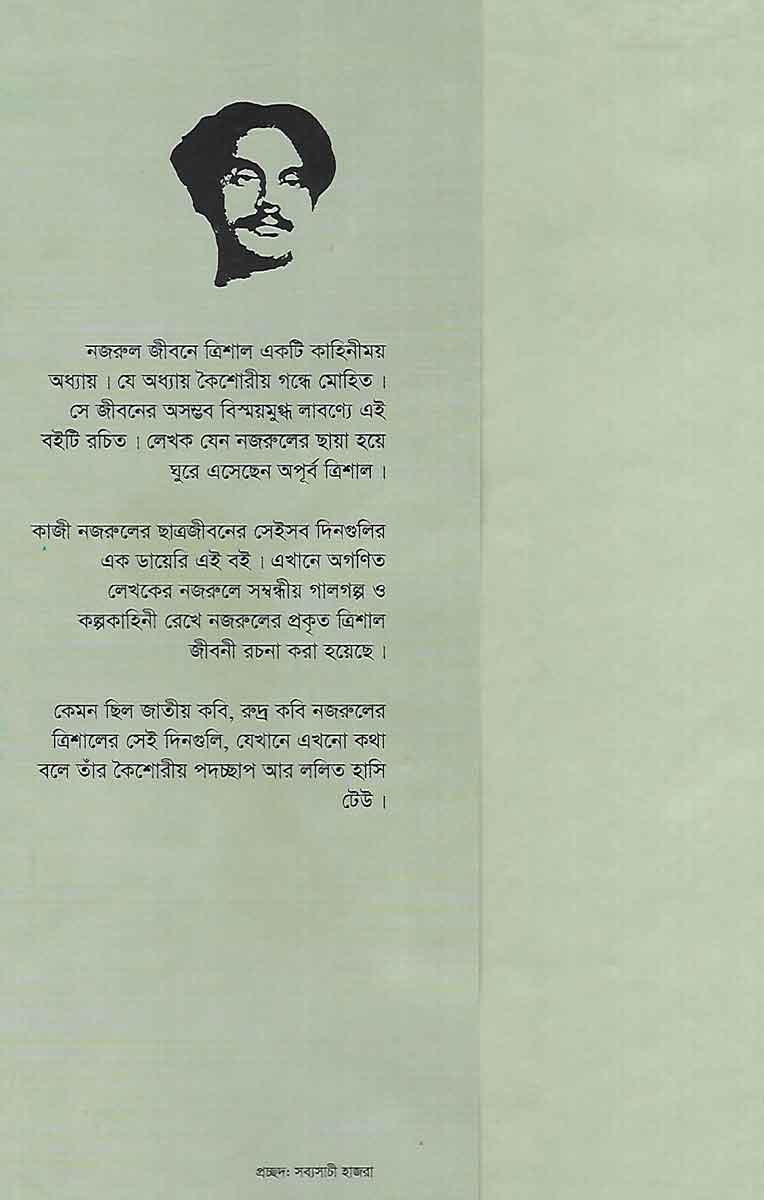 নজরুল জীবনে ত্রিশাল একটি কাহিনীময়
অধ্যায় । যে অধ্যায় কৈশোরীয় গন্ধে মোহিত ।
সে জীবনের অসম্ভব বিস্ময়মুগ্ধ লাবণ্যে এই
বইটি রচিত । লেখক যেন নজরুলের ছায়া হয়ে
ঘুরে এসেছেন অপূর্ব ত্রিশাল ।
কাজী নজরুলের ছাত্রজীবনের সেইসব দিনগুলির
এক ডায়েরি এই বই । এখানে অগণিত
লেখকের নজরুলে সম্বন্ধীয় গালগল্প ও
কল্পকাহিনী রেখে নজরুলের প্রকৃত ত্রিশাল
জীবনী রচনা করা হয়েছে ।
কেমন ছিল জাতীয় কবি, রুদ্র কবি নজরুলের
ত্রিশালের সেই দিনগুলি, যেখানে এখনো কথা
বলে তাঁর কৈশোরীয় পদচ্ছাপ আর ললিত হাসি
টেউ ।
প্রচ্ছদ: সব্যসাচী হাজরা